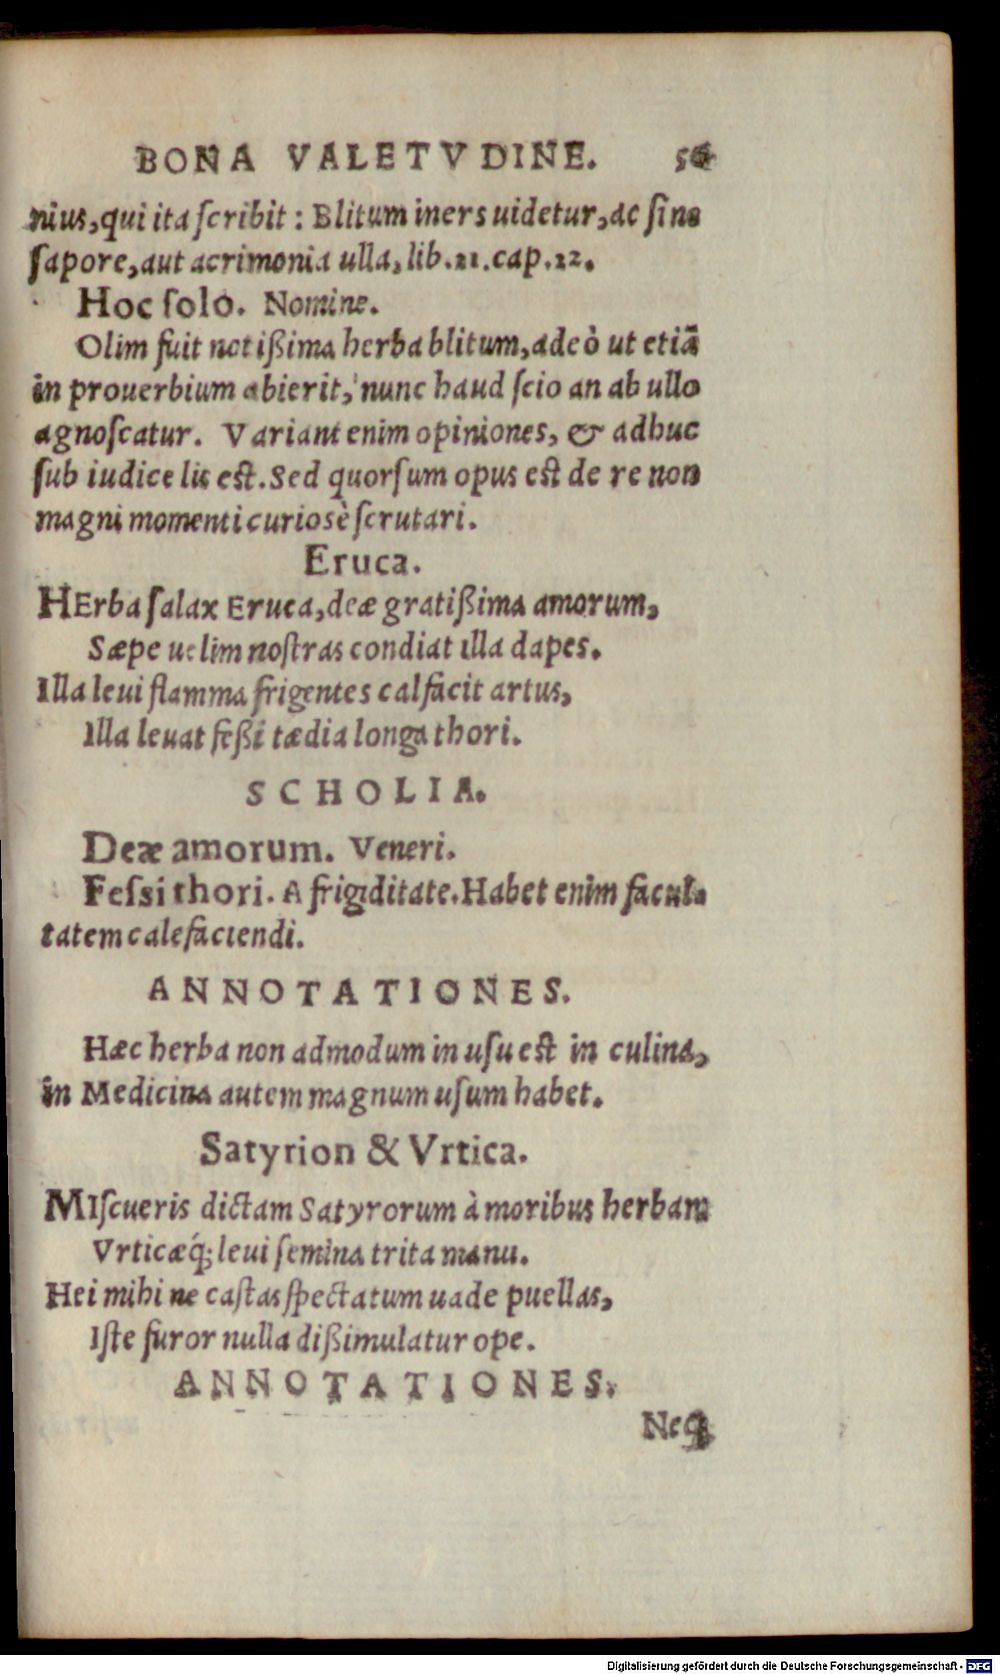 BONA VALETVDINE.
nius, qui ita ſcribit: Blitum iners uidetur, ac ſine
ſapore, aut acrimonia ulla, lib. 21. cap. 22.
Hoc ſolo. Nomine.
Olim fuit notißima herba blitum, adeò ut etiã
in prouerbium abierit, nunc haud ſcio an ab ullo
agnoſcatur. Variant enim opiniones, & adhuc
ſub iudice lis est. Sed quorſum opus est de re non
magni momenti curioſè ſcrutari.
Eruca.
HErba ſalax Eruca, deæ gratißima amorum,
Sæpe uelim noſtras condiat illa dapes.
Illa leui flamma frigentes calfacit artus,
Illa leuat feßi tædia longa thori.
SCHOLIA.
Deæ amorum. Veneri.
Feſsi thori. A frigiditate. Habet enim facul
tatem calefaciendi.
ANNOTATIONES.
Hæc herba non admodum in uſu est in culina,
in Medicina autem magnum uſum habet.
Satyrion & Vrtica.
MIſcueris dictam Satyrorum à moribus herbam
Vrticæq́; leui ſemina trita manu.
Hei mihi ne caſtas ſpectatum uade puellas,
Iſte furor nulla dißimulatur ope.
ANNOTATIONES.
Neq;
Digitalisierung gefördert durch die Deutsche Forschungsgemeinschaft - DFG